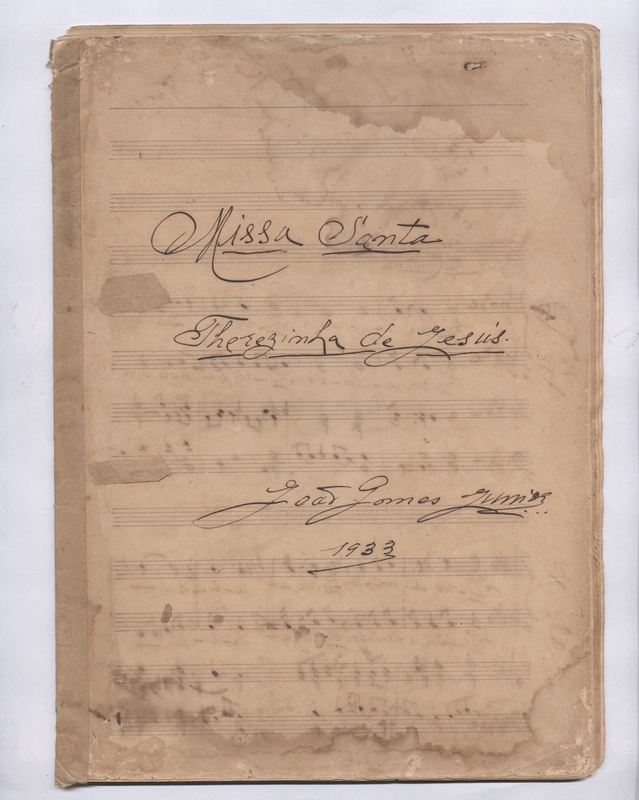 Missa Santa
Therezinha de Jesús.
João Gomes Junior
1933